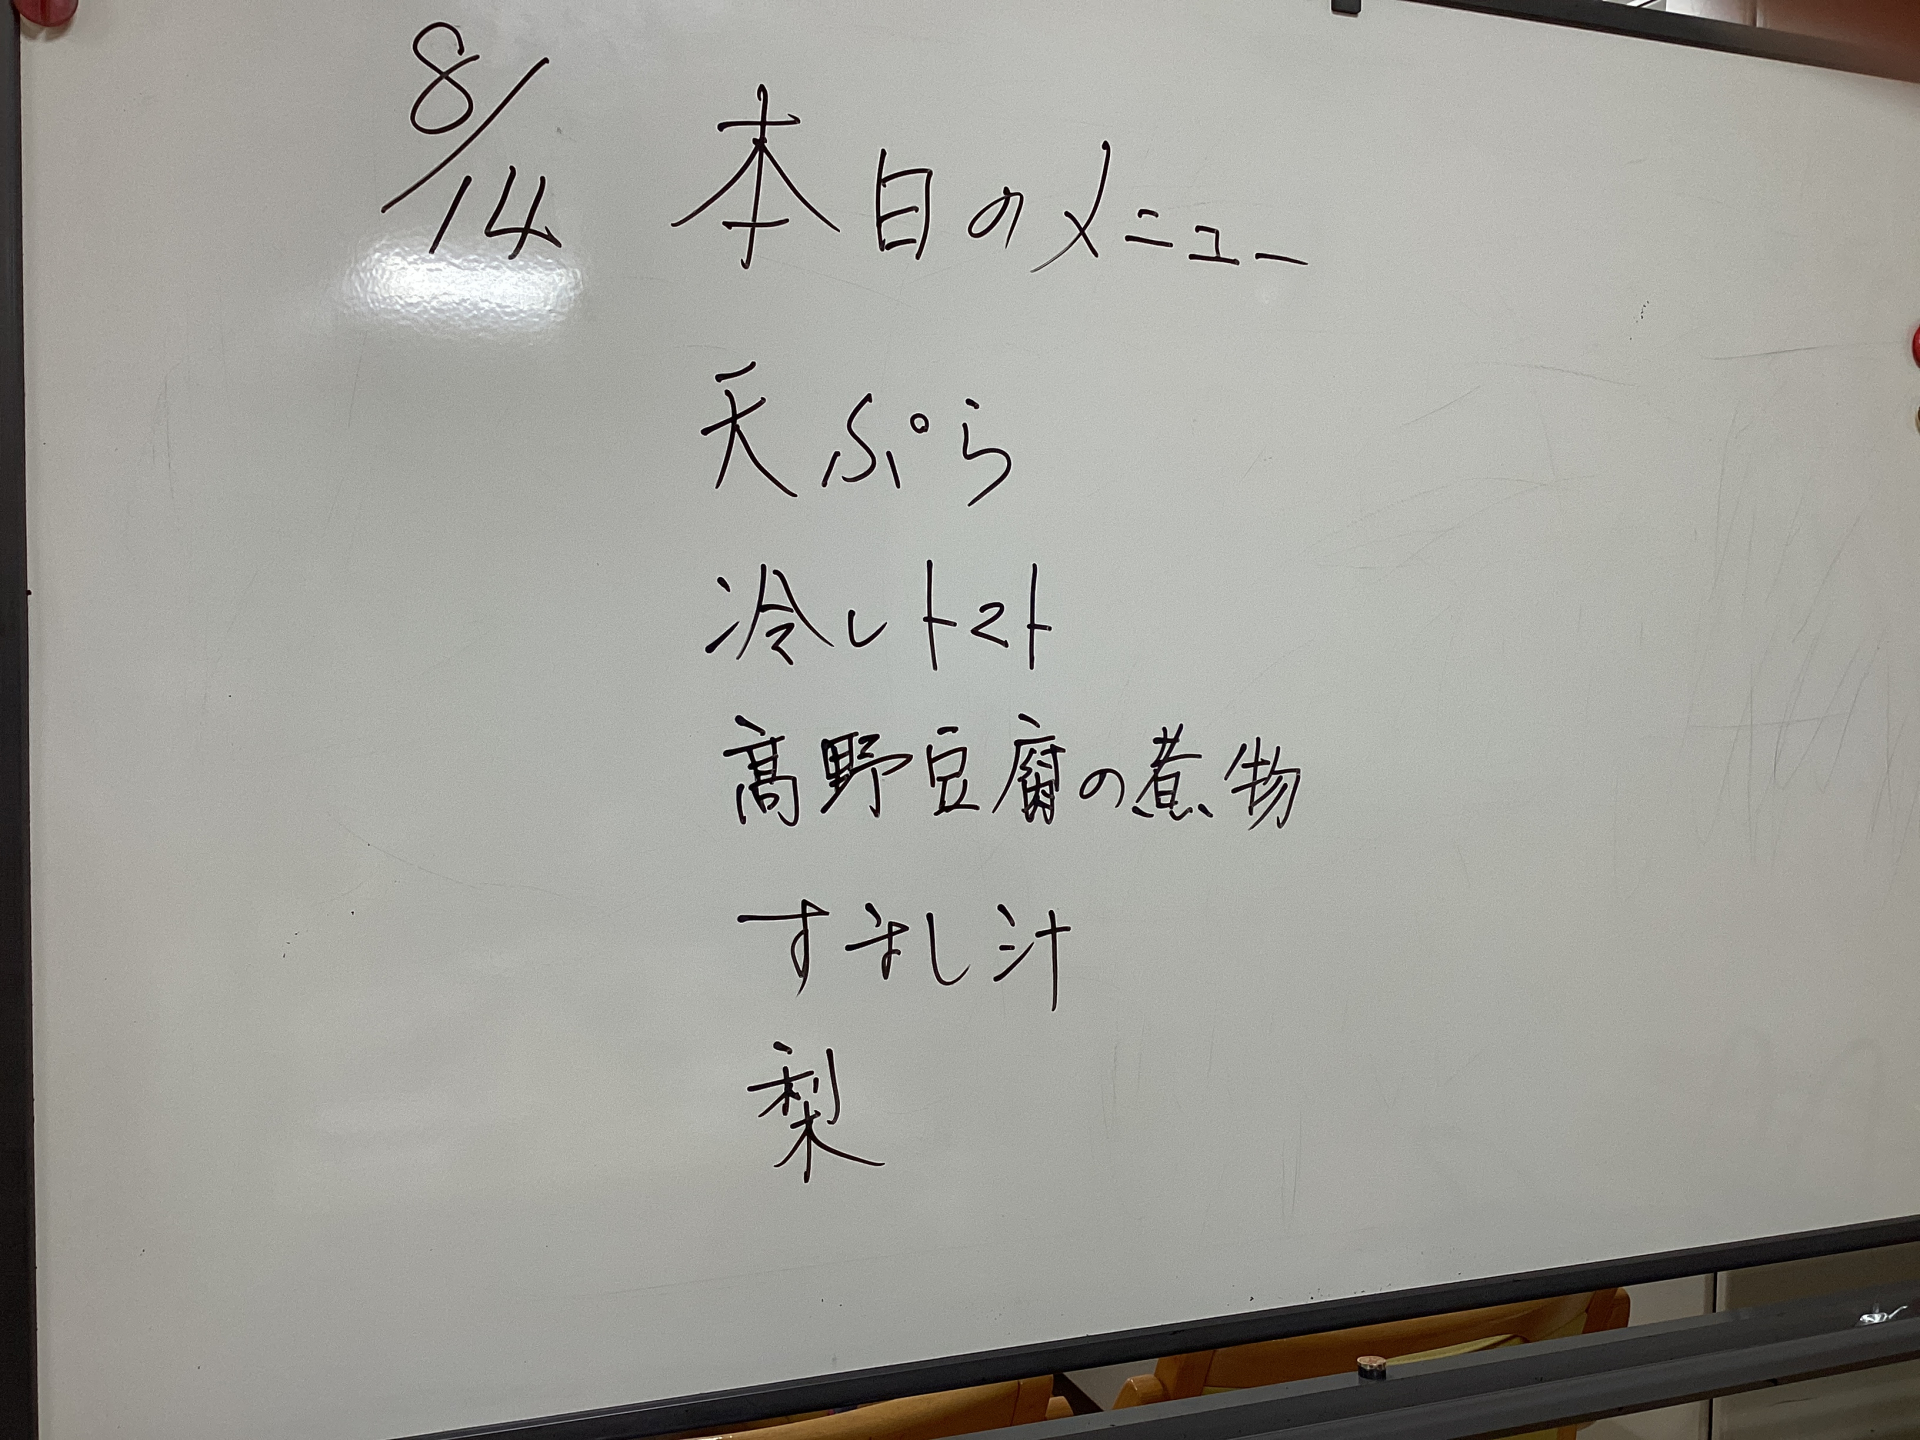 8/14 本日のメニュー
天ぷら
冷しトマト
髙野豆腐の煮物
すまし汁
梨